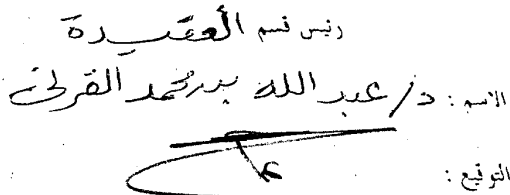 رئيس قسم العقيدة
الاسم : د/ عبد الله بن محمد القرني
التوقيع :